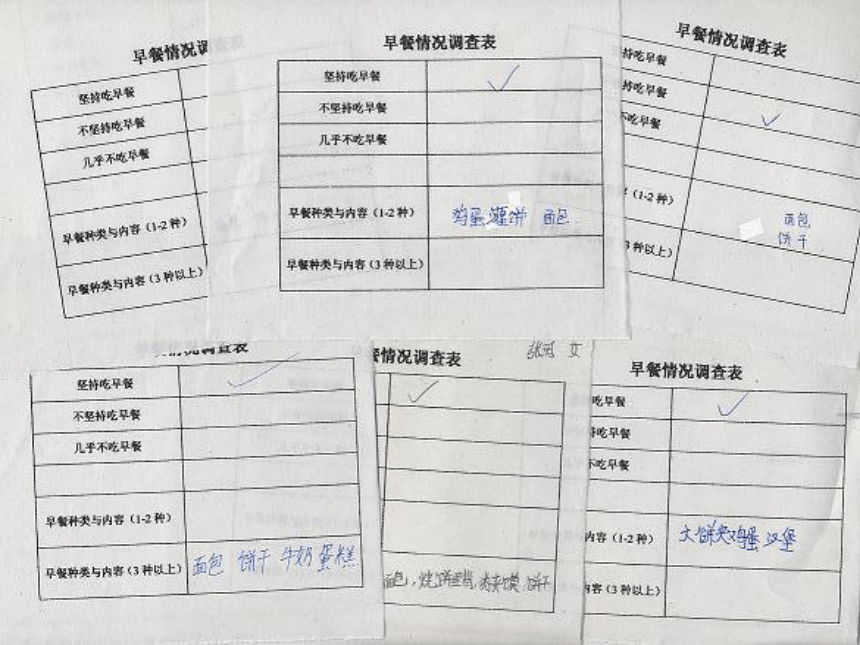 早餐情况调
坚持吃早餐
不坚持吃早餐
几乎不吃早餐
早餐种类与内容（1-2 种）
早餐种类与内容（3 种以上）
早餐情况调查表
坚持吃早餐
不坚持吃早餐
几乎不吃早餐
早餐种类与内容（1-2 种） 鸡蛋灌饼 面包
早餐种类与内容（3 种以上）
早餐情况调查表
持吃早餐
持吃早餐
不吃早餐
（1-2 种） 面包
饼干
3 种以上）
情况调查表
坚持吃早餐
不坚持吃早餐
几乎不吃早餐
早餐种类与内容（1-2 种）
早餐种类与内容（3 种以上） 面包 饼干 牛奶 蛋糕
餐情况调查表 女
面包，烧饼 肉夹馍 饼干
早餐情况调查表
吃早餐
持吃早餐
不吃早餐
内容（1-2 种） 大饼夹鸡蛋 汉堡
容（3 种以上）